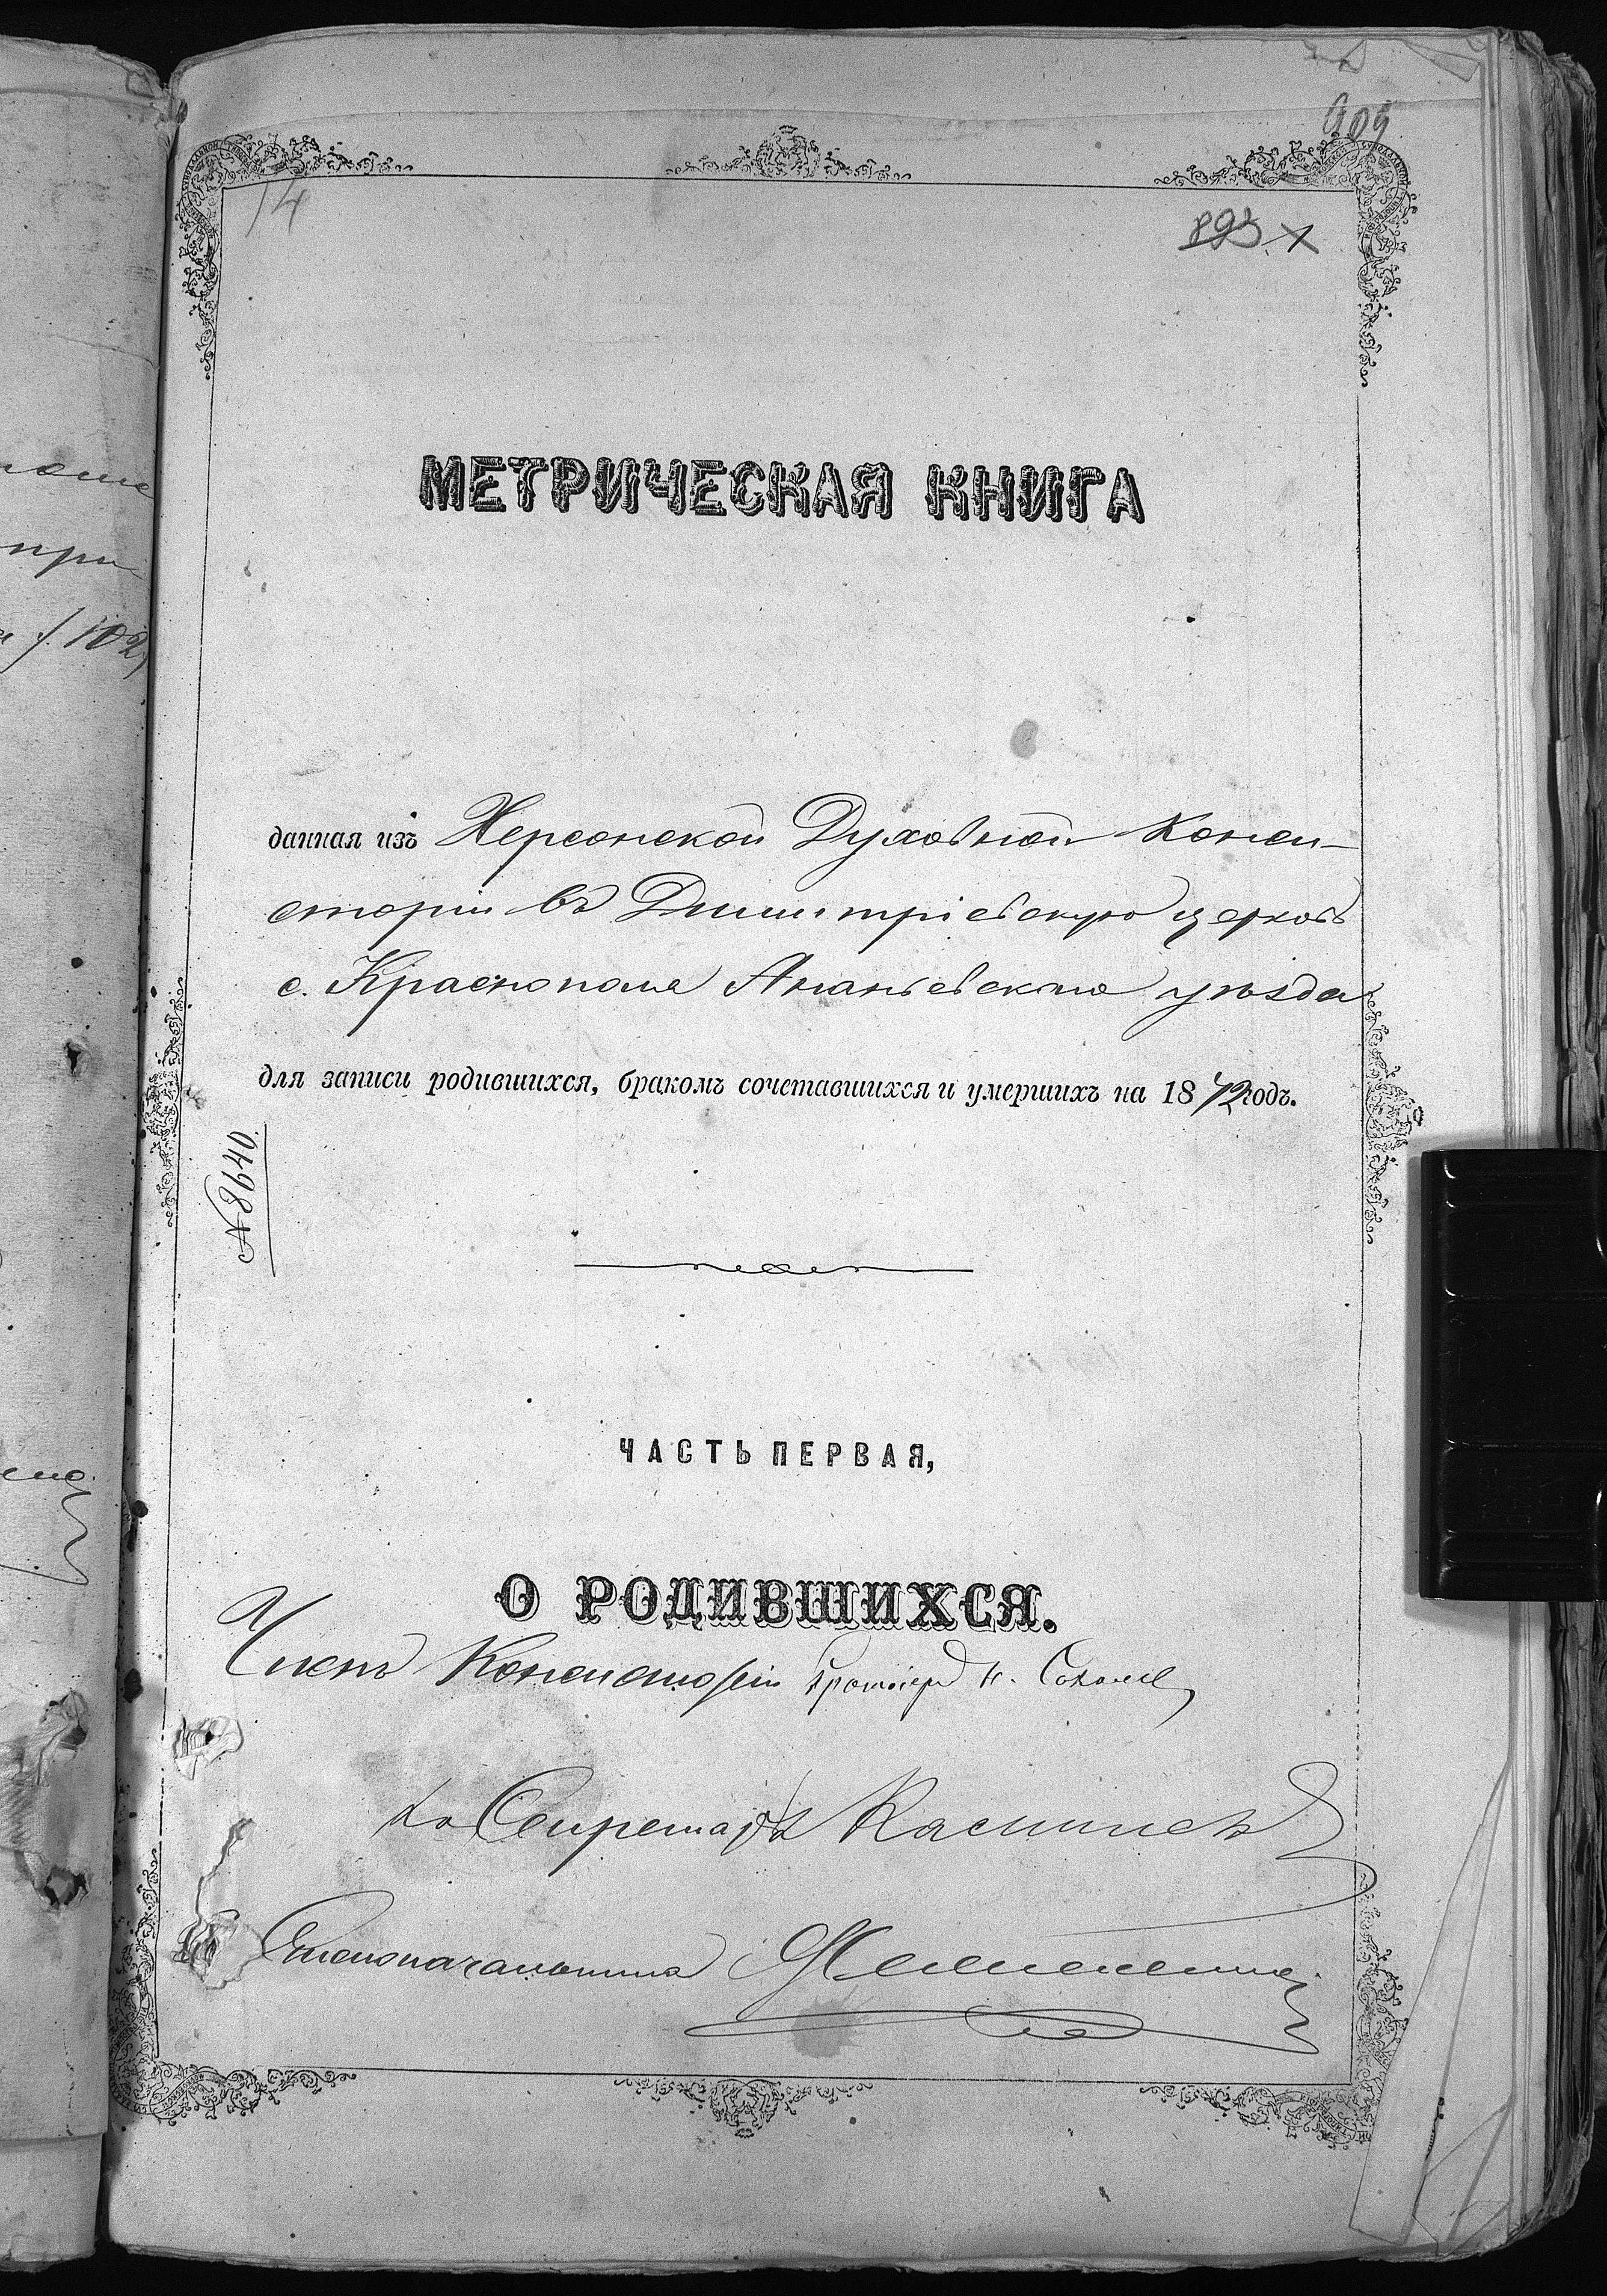 909
14
893
МЕТРИЧЕСКАЯ КНИГА
данная изъ Херсонской Духовной Конси-
сторіи въ Димитріевскую церковь
с. Краснополя Ананьевскаго уѣзда
для записи родившихся, бракомъ сочетавшихся и умершихъ на 1872 годъ.
№ 8640.
ЧАСТЬ ПЕРВАЯ,
О РОДИВШИХСЯ.
Членъ Консисторіи Протоіер
Секретарь
Столоначальникъ
при
102